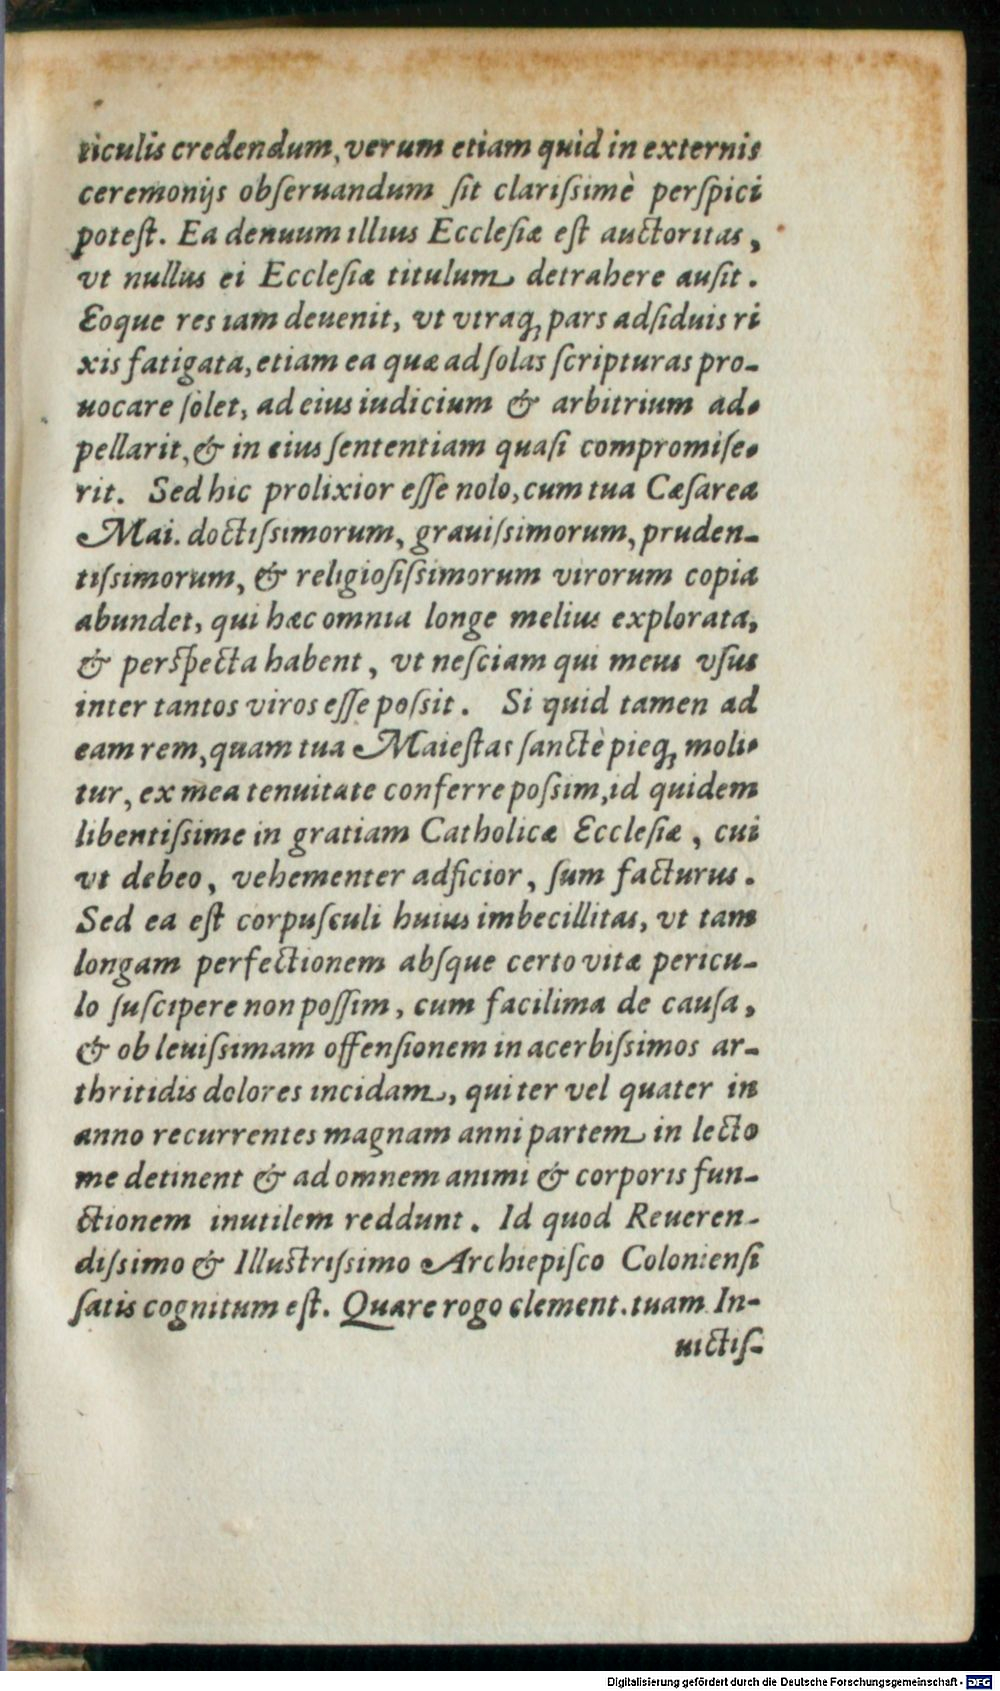 ticulis credendum, verum etiam quid in externis
ceremonijs obſeruandum ſit clariſsimè perſpici
poteſt. Ea denuum illius Eccleſiæ eſt auctoritas,
vt nullus ei Eccleſiæ titulum detrahere auſit.
Eoque res iam deuenit, vt vtraq; pars adſiduis ri
xis fatigata, etiam ea quæ ad ſolas ſcripturas pro-
uocare ſolet, ad eius iudicium & arbitrium ad-
pellarit, & in eius ſententiam quaſi compromiſe-
rit. Sed hic prolixior eſſe nolo, cum tua Cæſarea
Mai. doctiſsimorum, grauiſsimorum, pruden-
tiſsimorum, & religioſiſsimorum virorum copia
abundet, qui hæc omnia longe melius explorata,
& perſpecta habent, vt neſciam qui meus vſus
inter tantos viros eſſe poſsit. Si quid tamen ad
eam rem, quam tua Maieſtas ſanctè pieq; moli-
tur, ex mea tenuitate conferre poſsim, id quidem
libentiſsime in gratiam Catholicæ Eccleſiæ, cui
vt debeo, vehementer adficior, ſum facturus.
Sed ea eſt corpuſculi huius imbecillitas, vt tam
longam perfectionem abſque certo vitæ pericu-
lo ſuſcipere non poſſim, cum facilima de cauſa,
& ob leuiſsimam offenſionem in acerbiſsimos ar-
thritidis dolores incidam, qui ter vel quater in
anno recurrentes magnam anni partem in lecto
me detinent & ad omnem animi & corporis fun-
ctionem inutilem reddunt. Id quod Reueren-
diſsimo & Illuſtriſsimo Archiepiſco Colonienſi
ſatis cognitum eſt. Quare rogo clement. tuam In-
uictiſ-
Digitalisierung gefördert durch die Deutsche Forschungsgemeinschaft - DFG